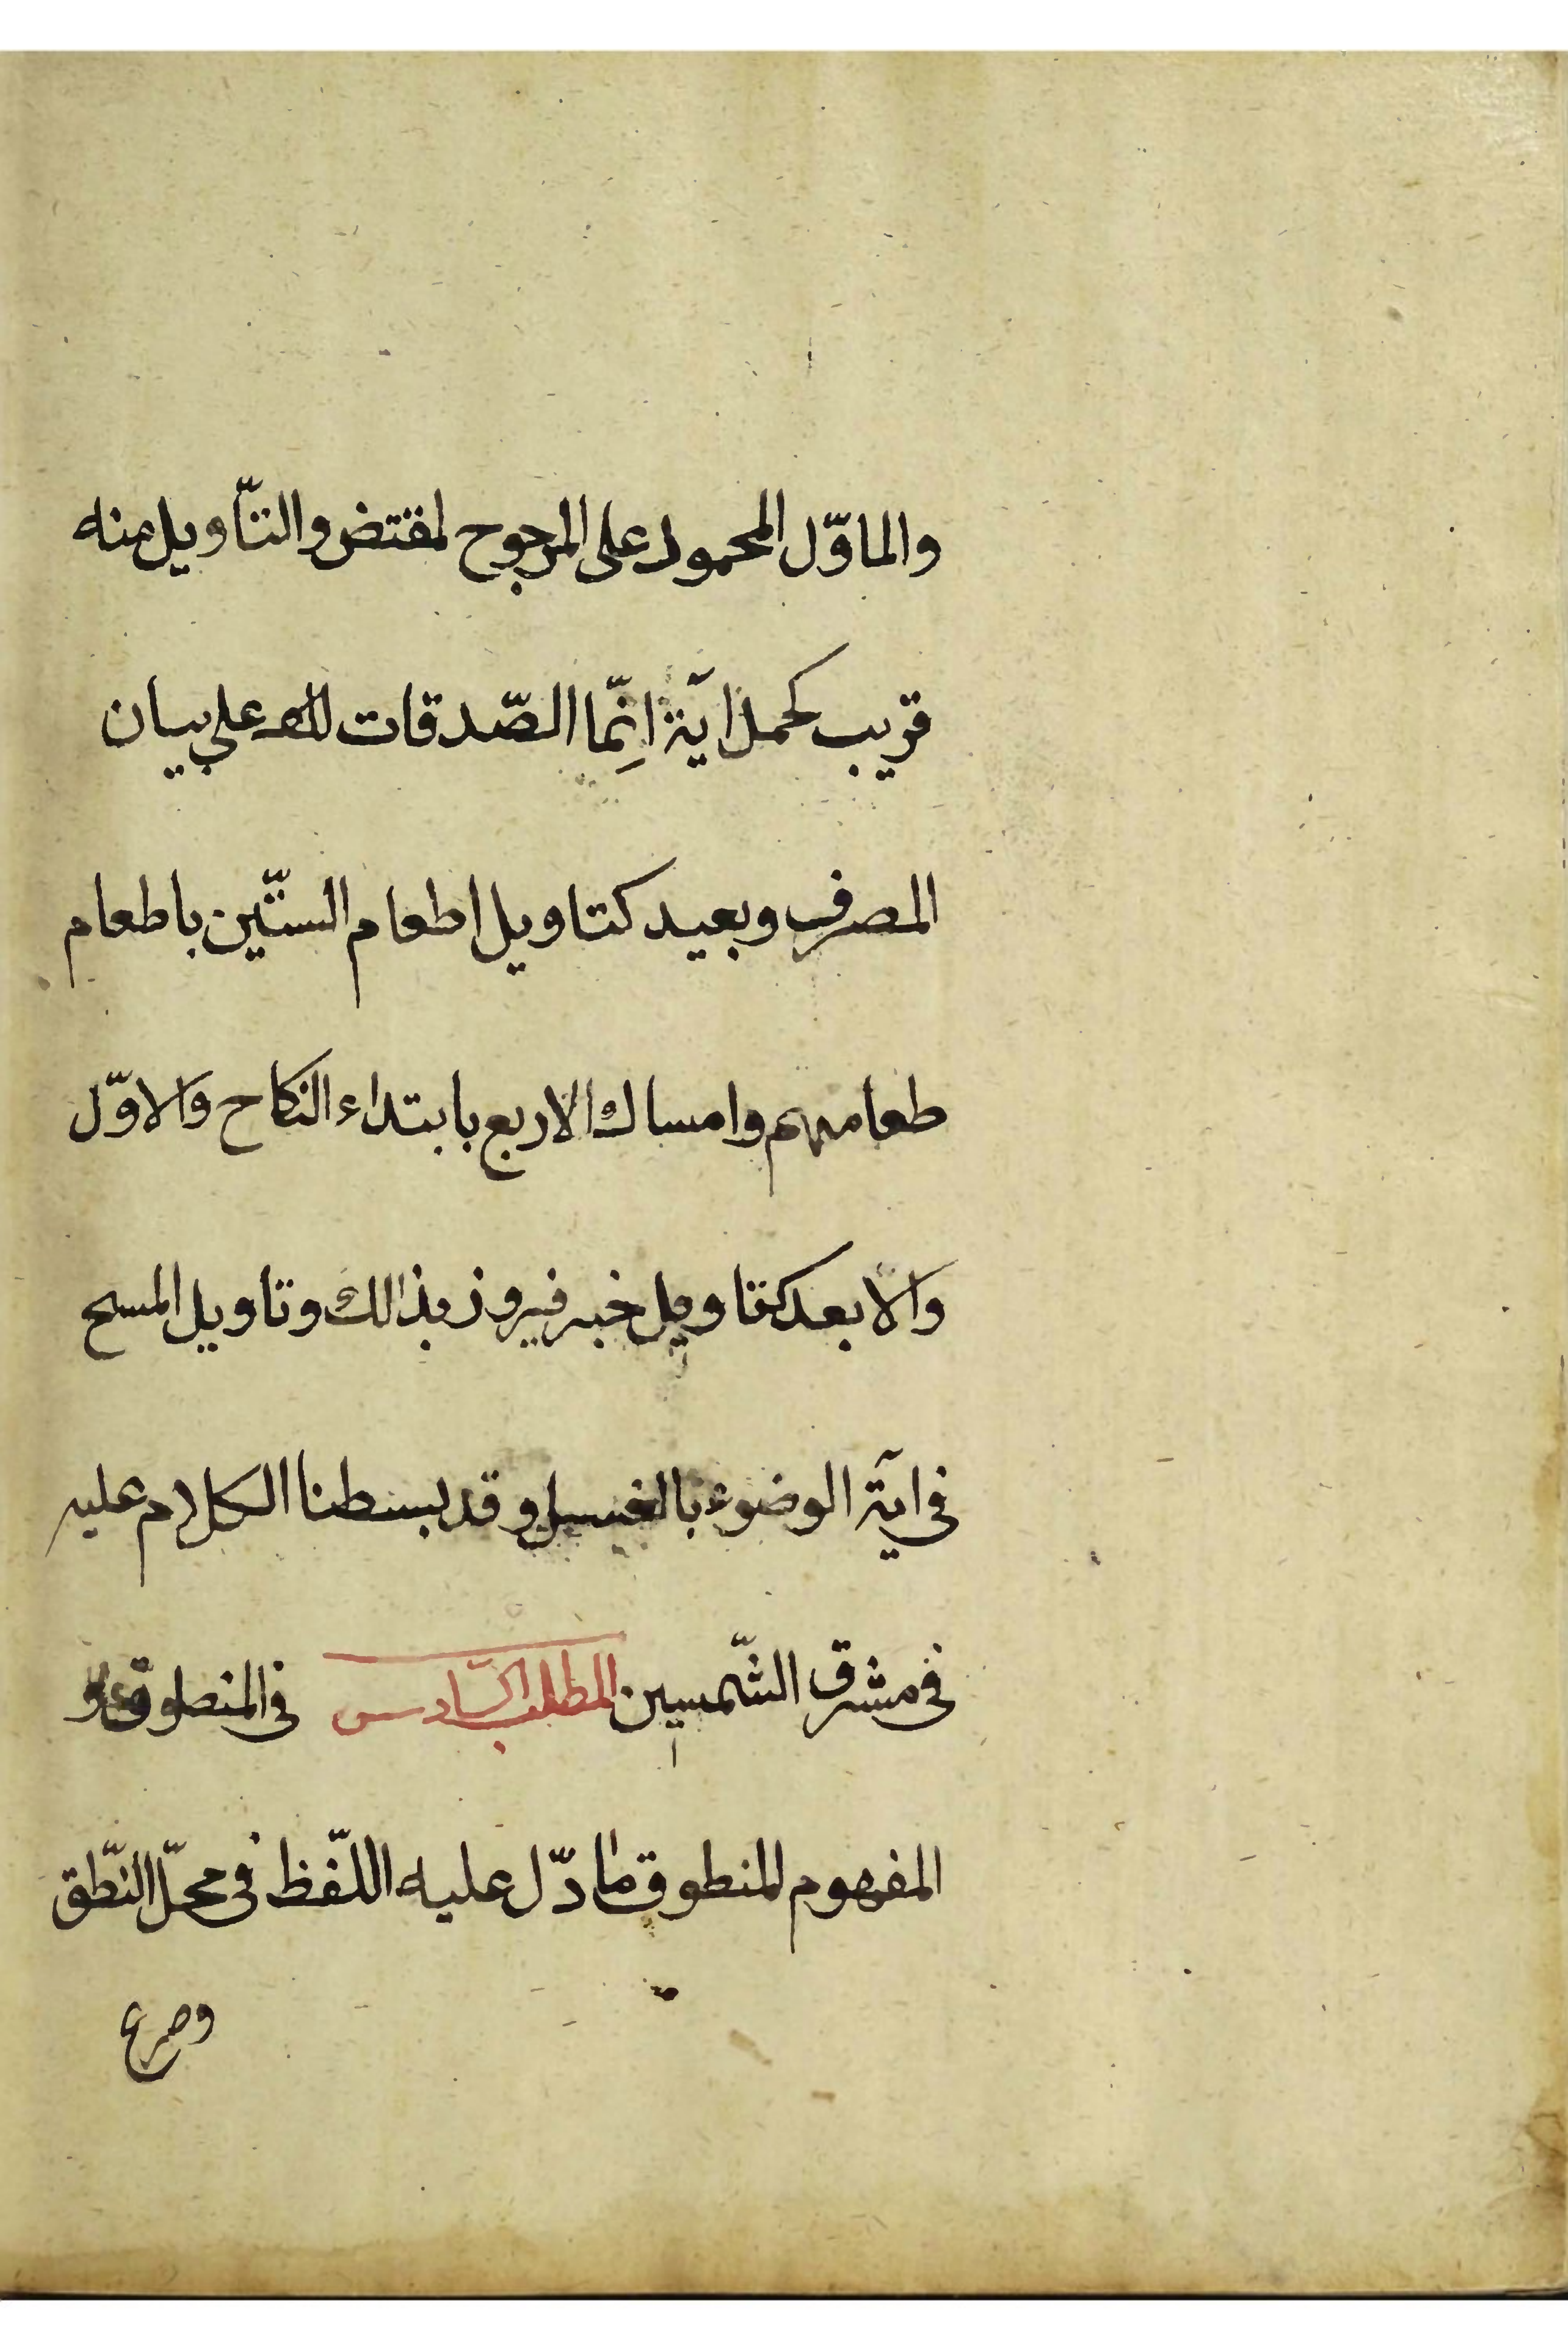 والماوّل المحمود على المرجوح لمقتض والتّاويل منه
قريب كحمل اية انِّما الصّدقات للفـ على بيان
المصرف وبعيد كتاويل اطعام الستّين باطعام
طعامهم وامساك الاربع بابتداء النكاح والاوّل
والابعد كتاويل خبر فيروز بذالك وتاويل المسح
فى آية الوضوء بالغسل وقد بسطنا الكلام عليه
فى مشرق الشّمسين المطلب السّادس فى المنطوق و
المفهوم المنطوق ما دّل عليه اللّفظ فى محلّ النّطق
وصرع